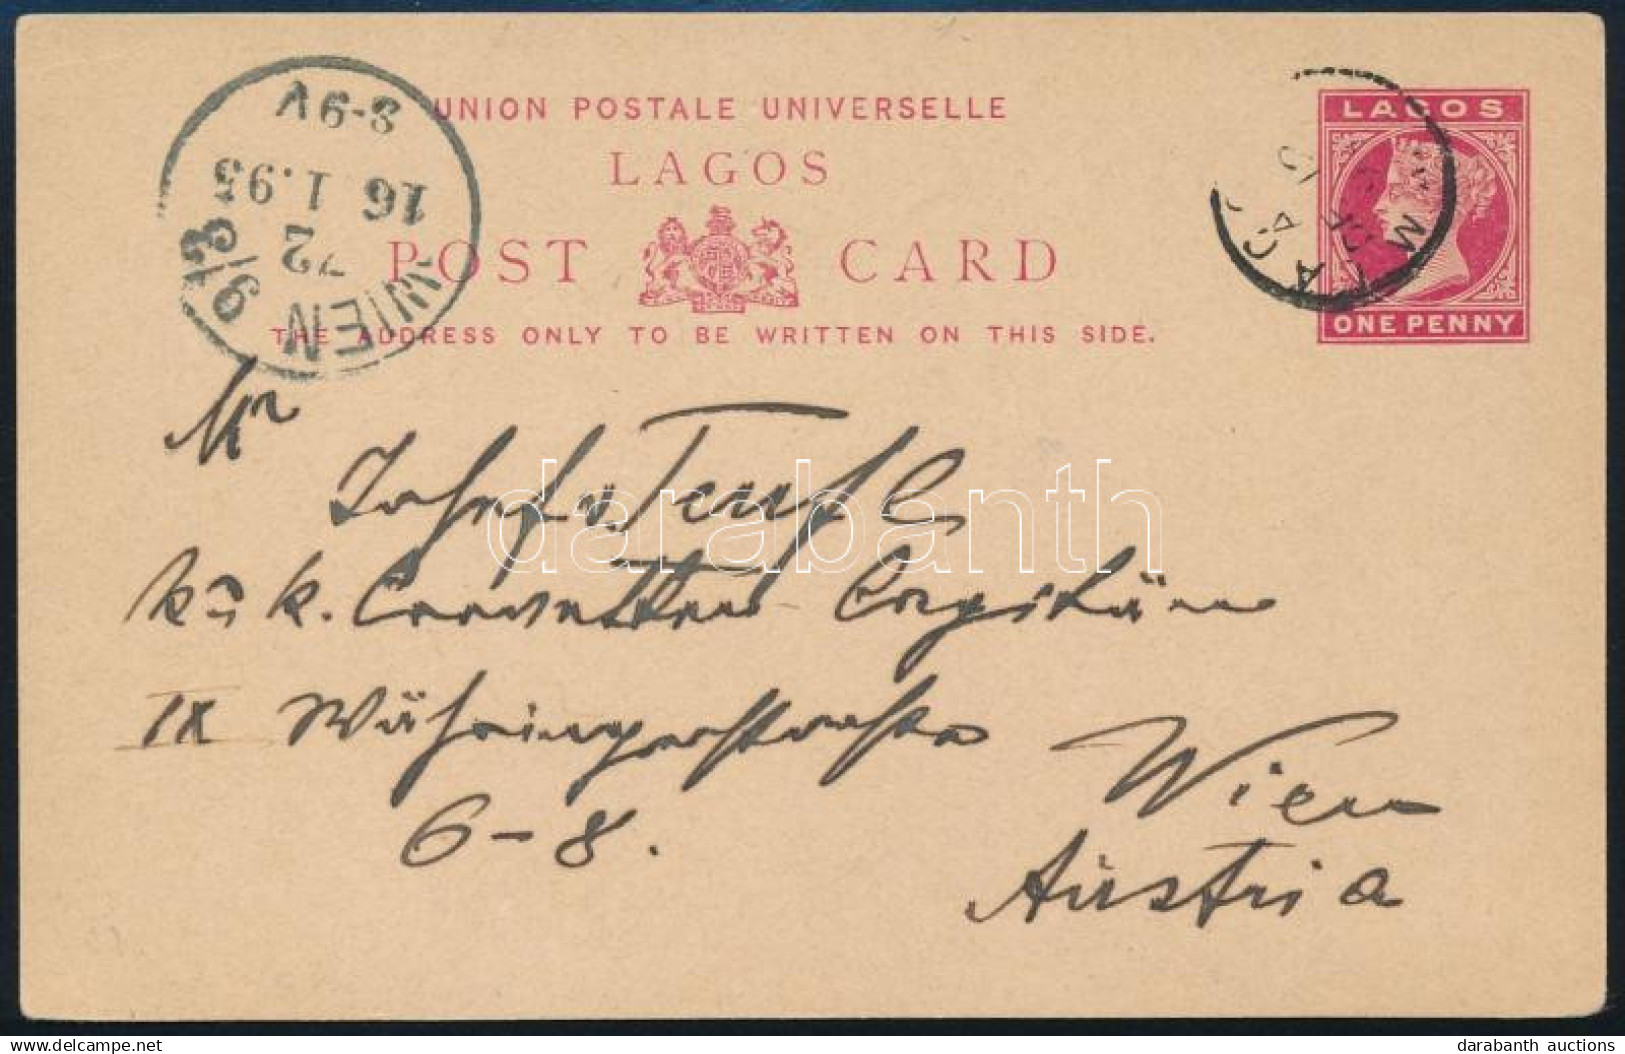 UNION POSTALE UNIVERSELLE
LAGOS
POST CARD
THE ADDRESS ONLY TO BE WRITTEN ON THIS SIDE.
LAGOS
ONE PENNY
WIEN 9/3
72
16 1.95
8-9V
LAGOS
Mr
v. Teufel
k u k. Corvetten Capitän
IX Währingerstrasse
6-8.
Wien
Austria
darabanth
www.delcampe.net
darabanth auctions